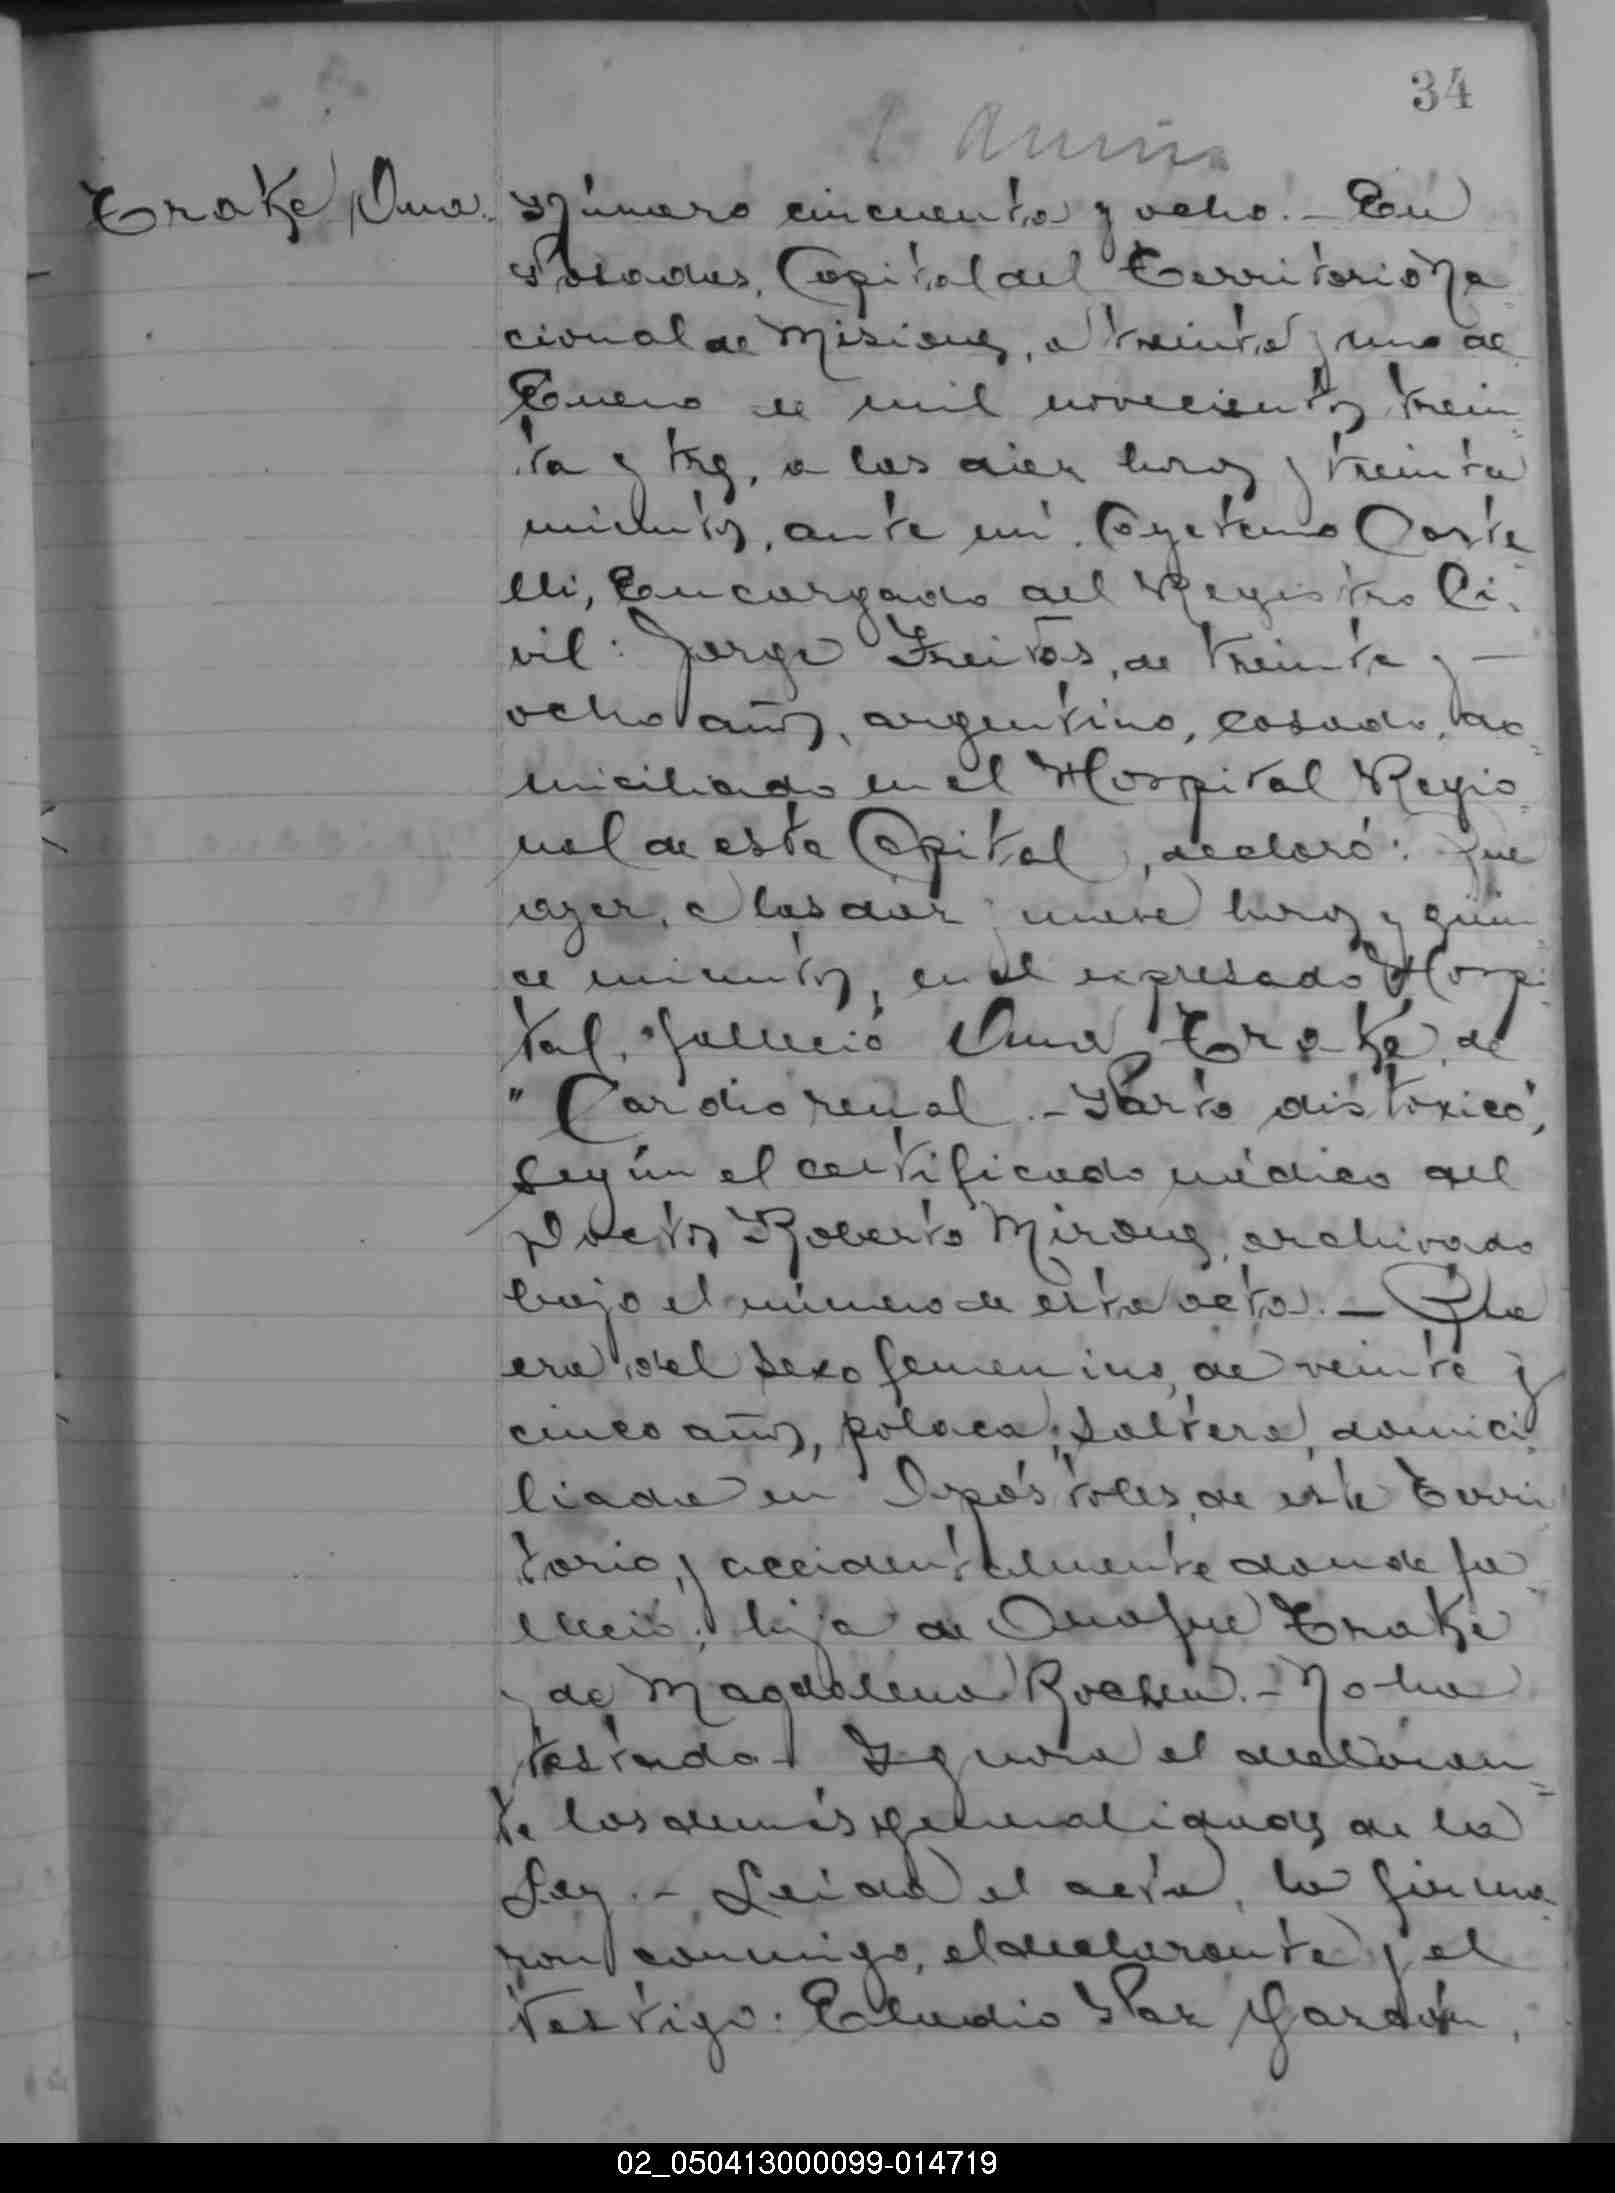 34
Número cincuenta y ocho.- En
Posadas, Capital del Territorio Na
cional de Misiones, a treinta y uno de
Enero de mil novecientos trein
ta y tres, a las diez horas y treinta
minutos, ante mí, Cayetano Caste
lli, Encargado del Registro Ci-
vil: Jorge Freitas, de treinta y —
ocho años, argentino, casado, do-
miciliado en el Hospital Regio-
nal de esta Capital, declaró: Que
ayer, a las diez y nueve horas y quin
ce minutos, en el expresado Hospi-
tal, falleció Trake, de
"Cardio renal.- Parto distoxico",
según el certificado médico del
Doctor Roberto Mirones, archivado
bajo el número de esta acta.—
era del sexo femenino, de veinte y
cinco años, polaca, soltera, domici
liada en Apóstoles, de este Terri
torio, y accidentalmente donde fa
lleció; hija de Onofre Trake
y de Magdalena.- No ha
testado.- Ignora el declaran-
te las demás generalidades de la
Ley.- Leida el acta, la firma-
ron conmigo, el declarante y el
testigo: Eludio Paz Garzón,
02_050413000099-014719